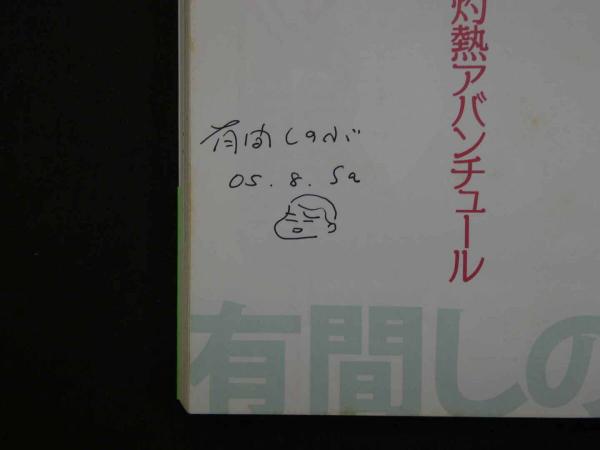 灼熱アバンチュール
有間しのぶ
05. 8. Sa
有間しの